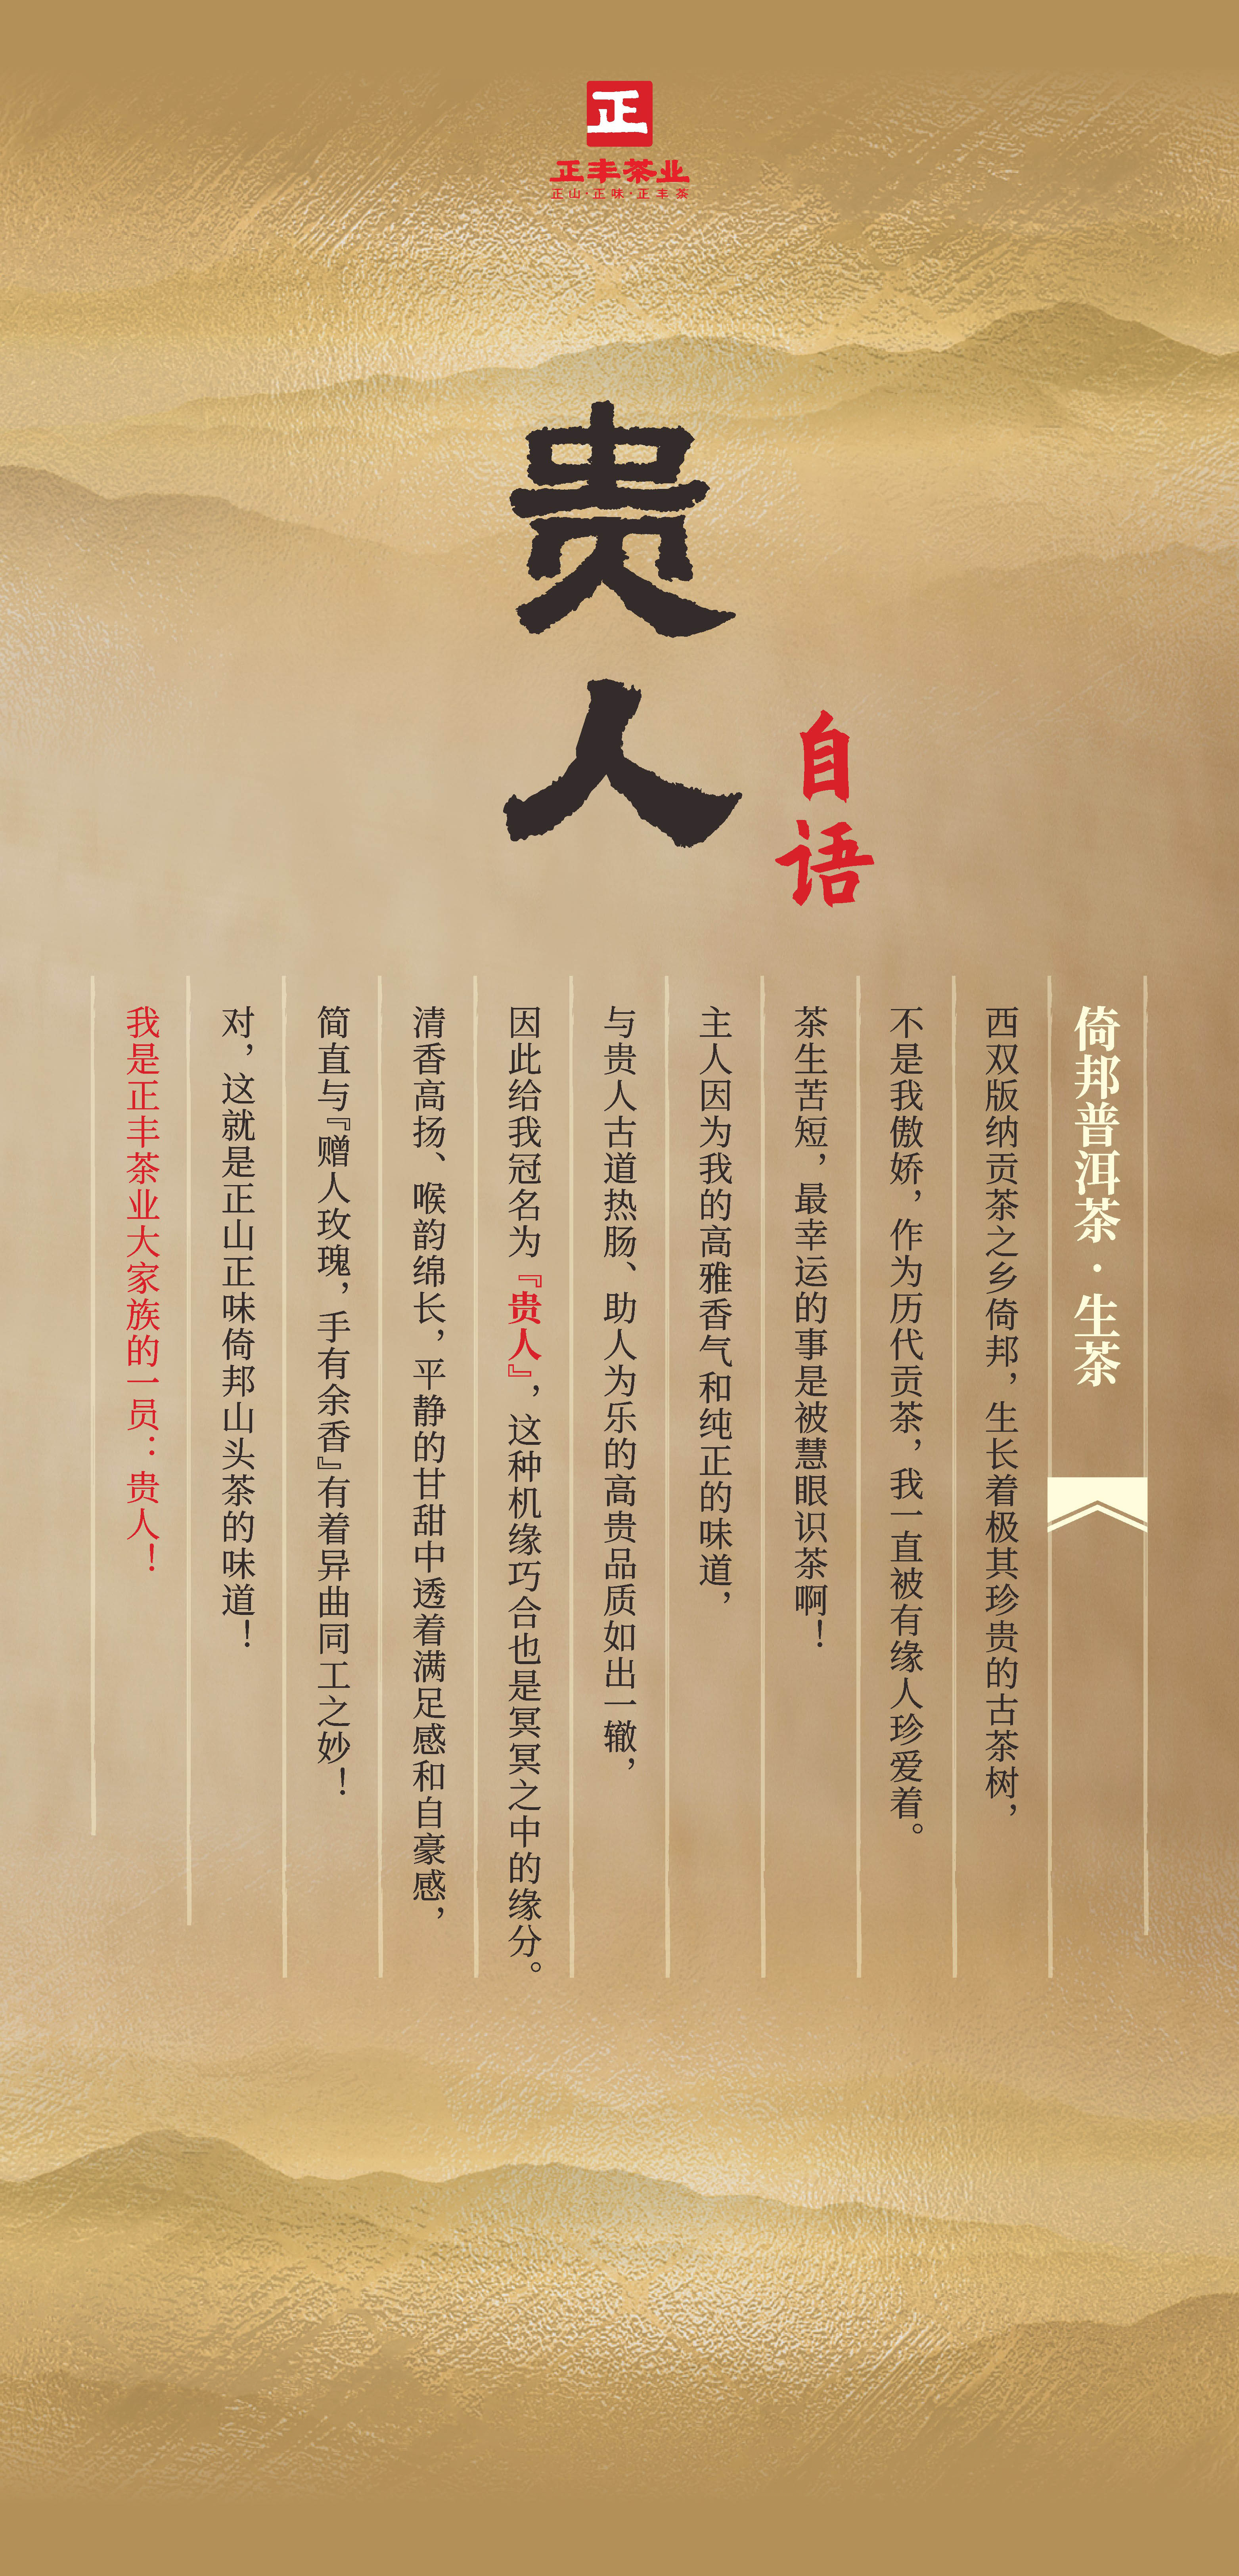 正
正丰茶业
正山·正味·正丰茶
贵人
自语
倚邦普洱茶·生茶
西双版纳贡茶之乡倚邦，生长着极其珍贵的古茶树，
不是我傲娇，作为历代贡茶，我一直被有缘人珍爱着。
茶生苦短，最幸运的事是被慧眼识茶啊！
主人因为我的高雅香气和纯正的味道，
与贵人古道热肠、助人为乐的高贵品质如出一辙，
因此给我冠名为『贵人』，这种机缘巧合也是冥冥之中的缘分。
清香高扬、喉韵绵长，平静的甘甜中透着满足感和自豪感，
简直与『赠人玫瑰，手有余香』有着异曲同工之妙！
对，这就是正山正味倚邦山头茶的味道！
我是正丰茶业大家族的一员：贵人！